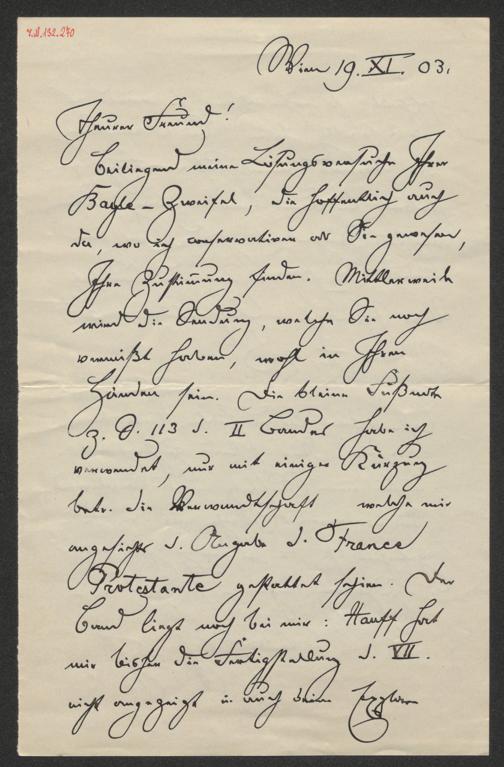 4.N.132.270
Wien 19. XI. 03.
Theurer Freund!
Beiliegend meine Lösungsversuche Ihrer
Bayle-Zweifel, die hoffentlich auch
da, wo ich conservativer als Sie gewesen,
Ihre Zustimmung finden. Mittlerweile
wird die Sendung, welche Sie noch
vermißt haben, wohl in Ihren
Händen sein. Die kleine Fußnote
z. S. 113 d. II Bandes habe ich
verwendet, nur mit einiger Kürzung
betr. die Verwandtschaft welche mir
angesichts d. Angabe d. France
Protestante gestattet schien. Der
Band liegt noch bei mir: Hauff hat
mir bisher die Fertigstellung d. VII.
nicht angezeigt u. auch keine